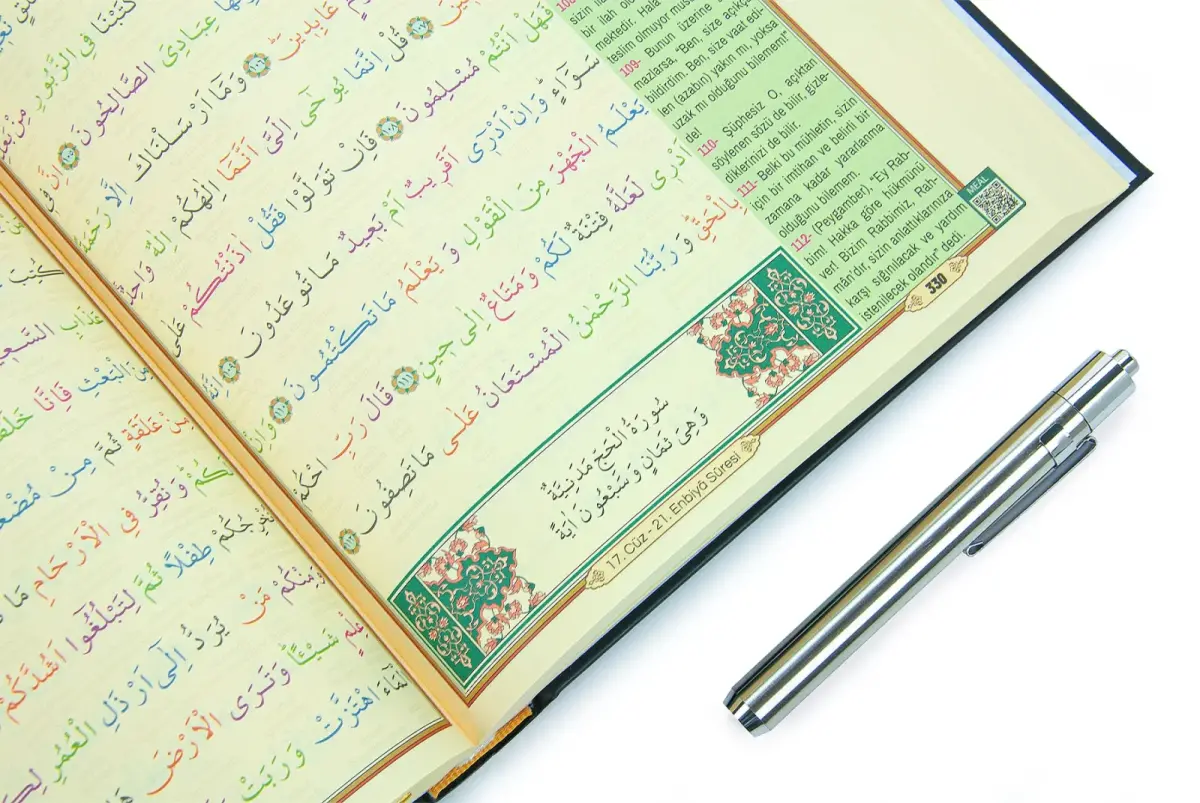 كَتَبْنَا فِي الزَّبُورِ مِنْ
عِبَادِيَ الصَّالِحُونَ ﴿١٠٥﴾ اِنَّ فِي
عَابِدِينَ ﴿١٠٦﴾ وَمَا اَرْسَلْنَاكَ اِلَّا
﴿١٠٧﴾ قُلْ اِنَّمَا يُوحٰى اِلَيَّ اَنَّمَا اِلٰهُكُمْ اِلٰهٌ وَاحِدٌ
فَهَلْ اَنْتُمْ مُسْلِمُونَ ﴿١٠٨﴾ فَاِنْ تَوَلَّوْا فَقُلْ اٰذَنْتُكُمْ عَلٰى
سَوَاءٍ وَاِنْ اَدْرِي اَقَرِيبٌ اَمْ بَعِيدٌ مَا تُوعَدُونَ ﴿١٠٩﴾ اِنَّهُ
يَعْلَمُ الْجَهْرَ مِنَ الْقَوْلِ وَيَعْلَمُ مَا تَكْتُمُونَ ﴿١١٠﴾ وَاِنْ
اَدْرِي لَعَلَّهُ فِتْنَةٌ لَكُمْ وَمَتَاعٌ اِلٰى حِينٍ ﴿١١١﴾ قَالَ رَبِّ احْكُمْ
بِالْحَقِّ وَرَبُّنَا الرَّحْمٰنُ الْمُسْتَعَانُ عَلٰى مَا تَصِفُونَ ﴿١١٢﴾
سُورَةُ الْحَجِّ مَدَنِيَّةٌ
وَهِيَ ثَمَانٍ وَسَبْعُونَ اٰيَةً
17. Cüz - 21. Enbiyâ Sûresi
bir ilan
mektedir. Hala
teslim olmuyor mus
109- Bunun üzerine
mazlarsa, "Ben, size açıkça
bildirdim. Ben, size vaat edi-
len (azabın) yakın mı, yoksa
uzak mı olduğunu bilemem"
de!
110- Şüphesiz O, açıktan
söylenen sözü de bilir, gizle-
diklerinizi de bilir.
111- Belki bu mühletin sizin
için bir imtihan ve belirli bir
zamana kadar yararlanma
olduğunu bilemem.
112- (Peygamber), "Ey Rab-
bim! Hakka göre hükmünü
ver! Bizim Rabbimiz, Rah-
mân'dır, sizin anlattıklarınıza
karşı sığınılacak ve yardım
istenilecek olandır" dedi.
MEAL
330
كُتِبَ
عَذَابِ السَّعِيرِ
مِنَ الْبَعْثِ فَاِنَّا
مِنْ عَلَقَةٍ ثُمَّ مِنْ
وَنُقِرُّ فِي الْاَرْحَامِ مَا
طِفْلًا ثُمَّ لِتَبْلُغُوا اَشُدَّكُمْ
وَمِنْكُمْ مَنْ يُرَدُّ اِلٰى اَرْذَلِ الْعُمُرِ
شَيْئًا وَتَرَى الْاَرْضَ
الْمَاءَ اهْتَزَّتْ وَرَبَتْ